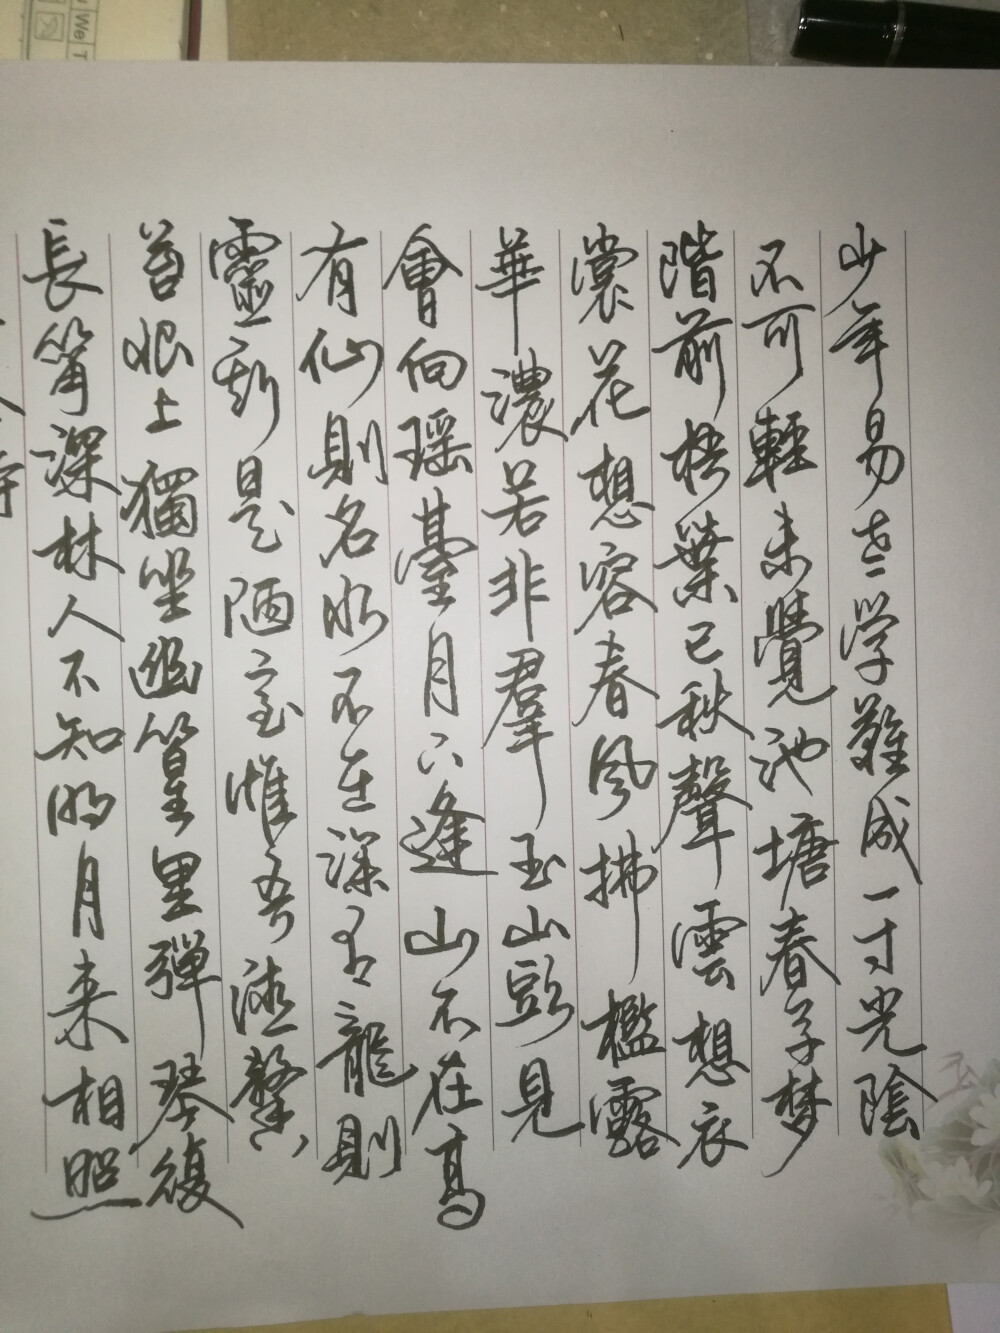 We
少年易老学難成一寸光陰
不可輕未覺池塘春草梦
階前梧葉已秋聲雲想衣
裳花想容春風拂檻露
華濃若非羣玉山頭見
會向瑶臺月下逢山不在高
有仙則名水不在深有龍則
靈斯是陋室惟吾德馨
苔痕上獨坐幽篁里彈琴復
長嘯深林人不知明月来相照